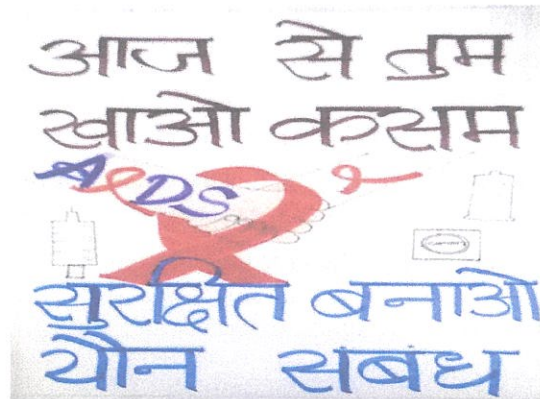 आज से तुम
खाओ कसम
AIDS
सुरक्षित बनाओ
यौन संबंध